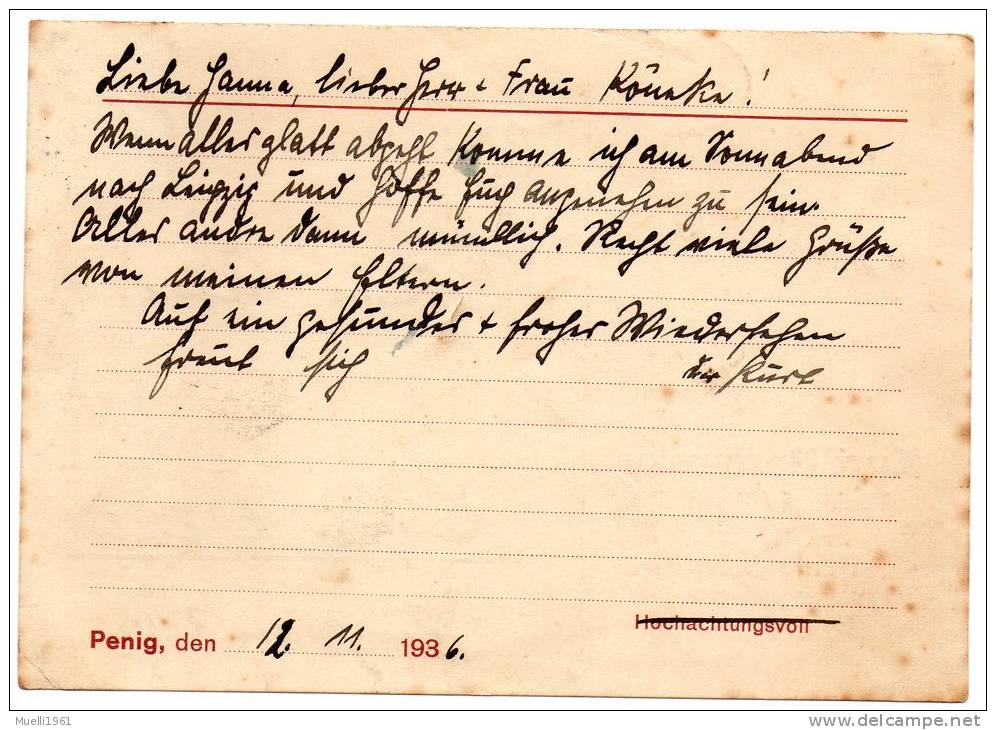 Liebe Hanna, lieber Herr + Frau Köneke!
Wenn alles glatt abgeht komme ich am Sonnabend
nach Leipzig und hoffe Euch angenehm zu sein.
Alles andre dann mündlich. Recht viele Grüße
von meinen Eltern.
Auf ein gesundes + frohes Wiedersehen
freut sich der Kurt
Hochachtungsvoll
Penig, den 12. 11. 1936.
Muelli1961
delcampe.net